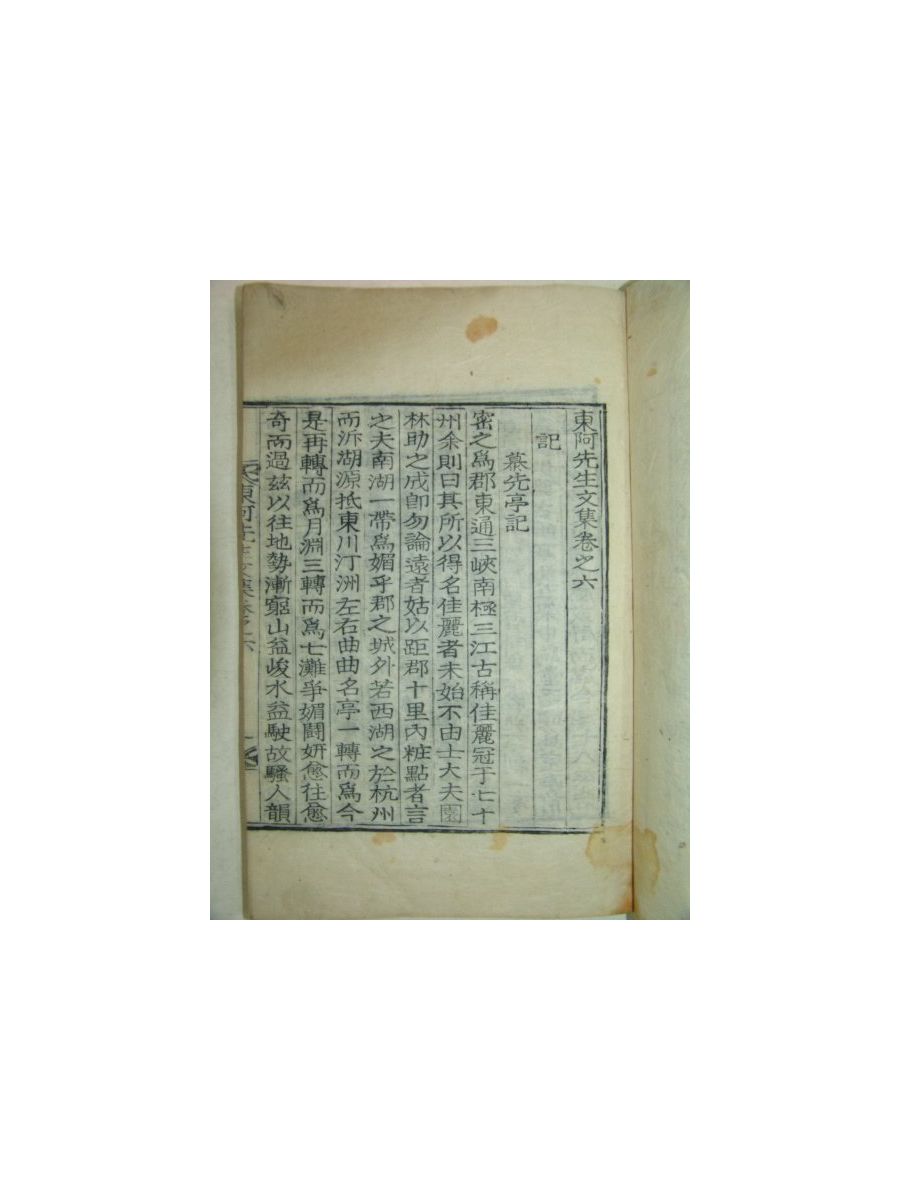 東阿先生文集卷之六
記
慕先亭記
密之爲郡東通三峽南極三江古稱佳麗冠于七十
州余則曰其所以得名佳麗者未始不由士大夫園
林助之成卽勿論遠者姑以距郡十里內粧點者言
之夫南湖一帶爲媚乎郡之城外若西湖之於杭州
而泝湖源抵東川汀洲左右曲曲名亭一轉而爲今
是再轉而爲月淵三轉而爲七灘爭媚鬪姸愈往愈
奇而過玆以往地勢漸窮山益峻水益駛故騷人韻
東阿先生文集卷之六